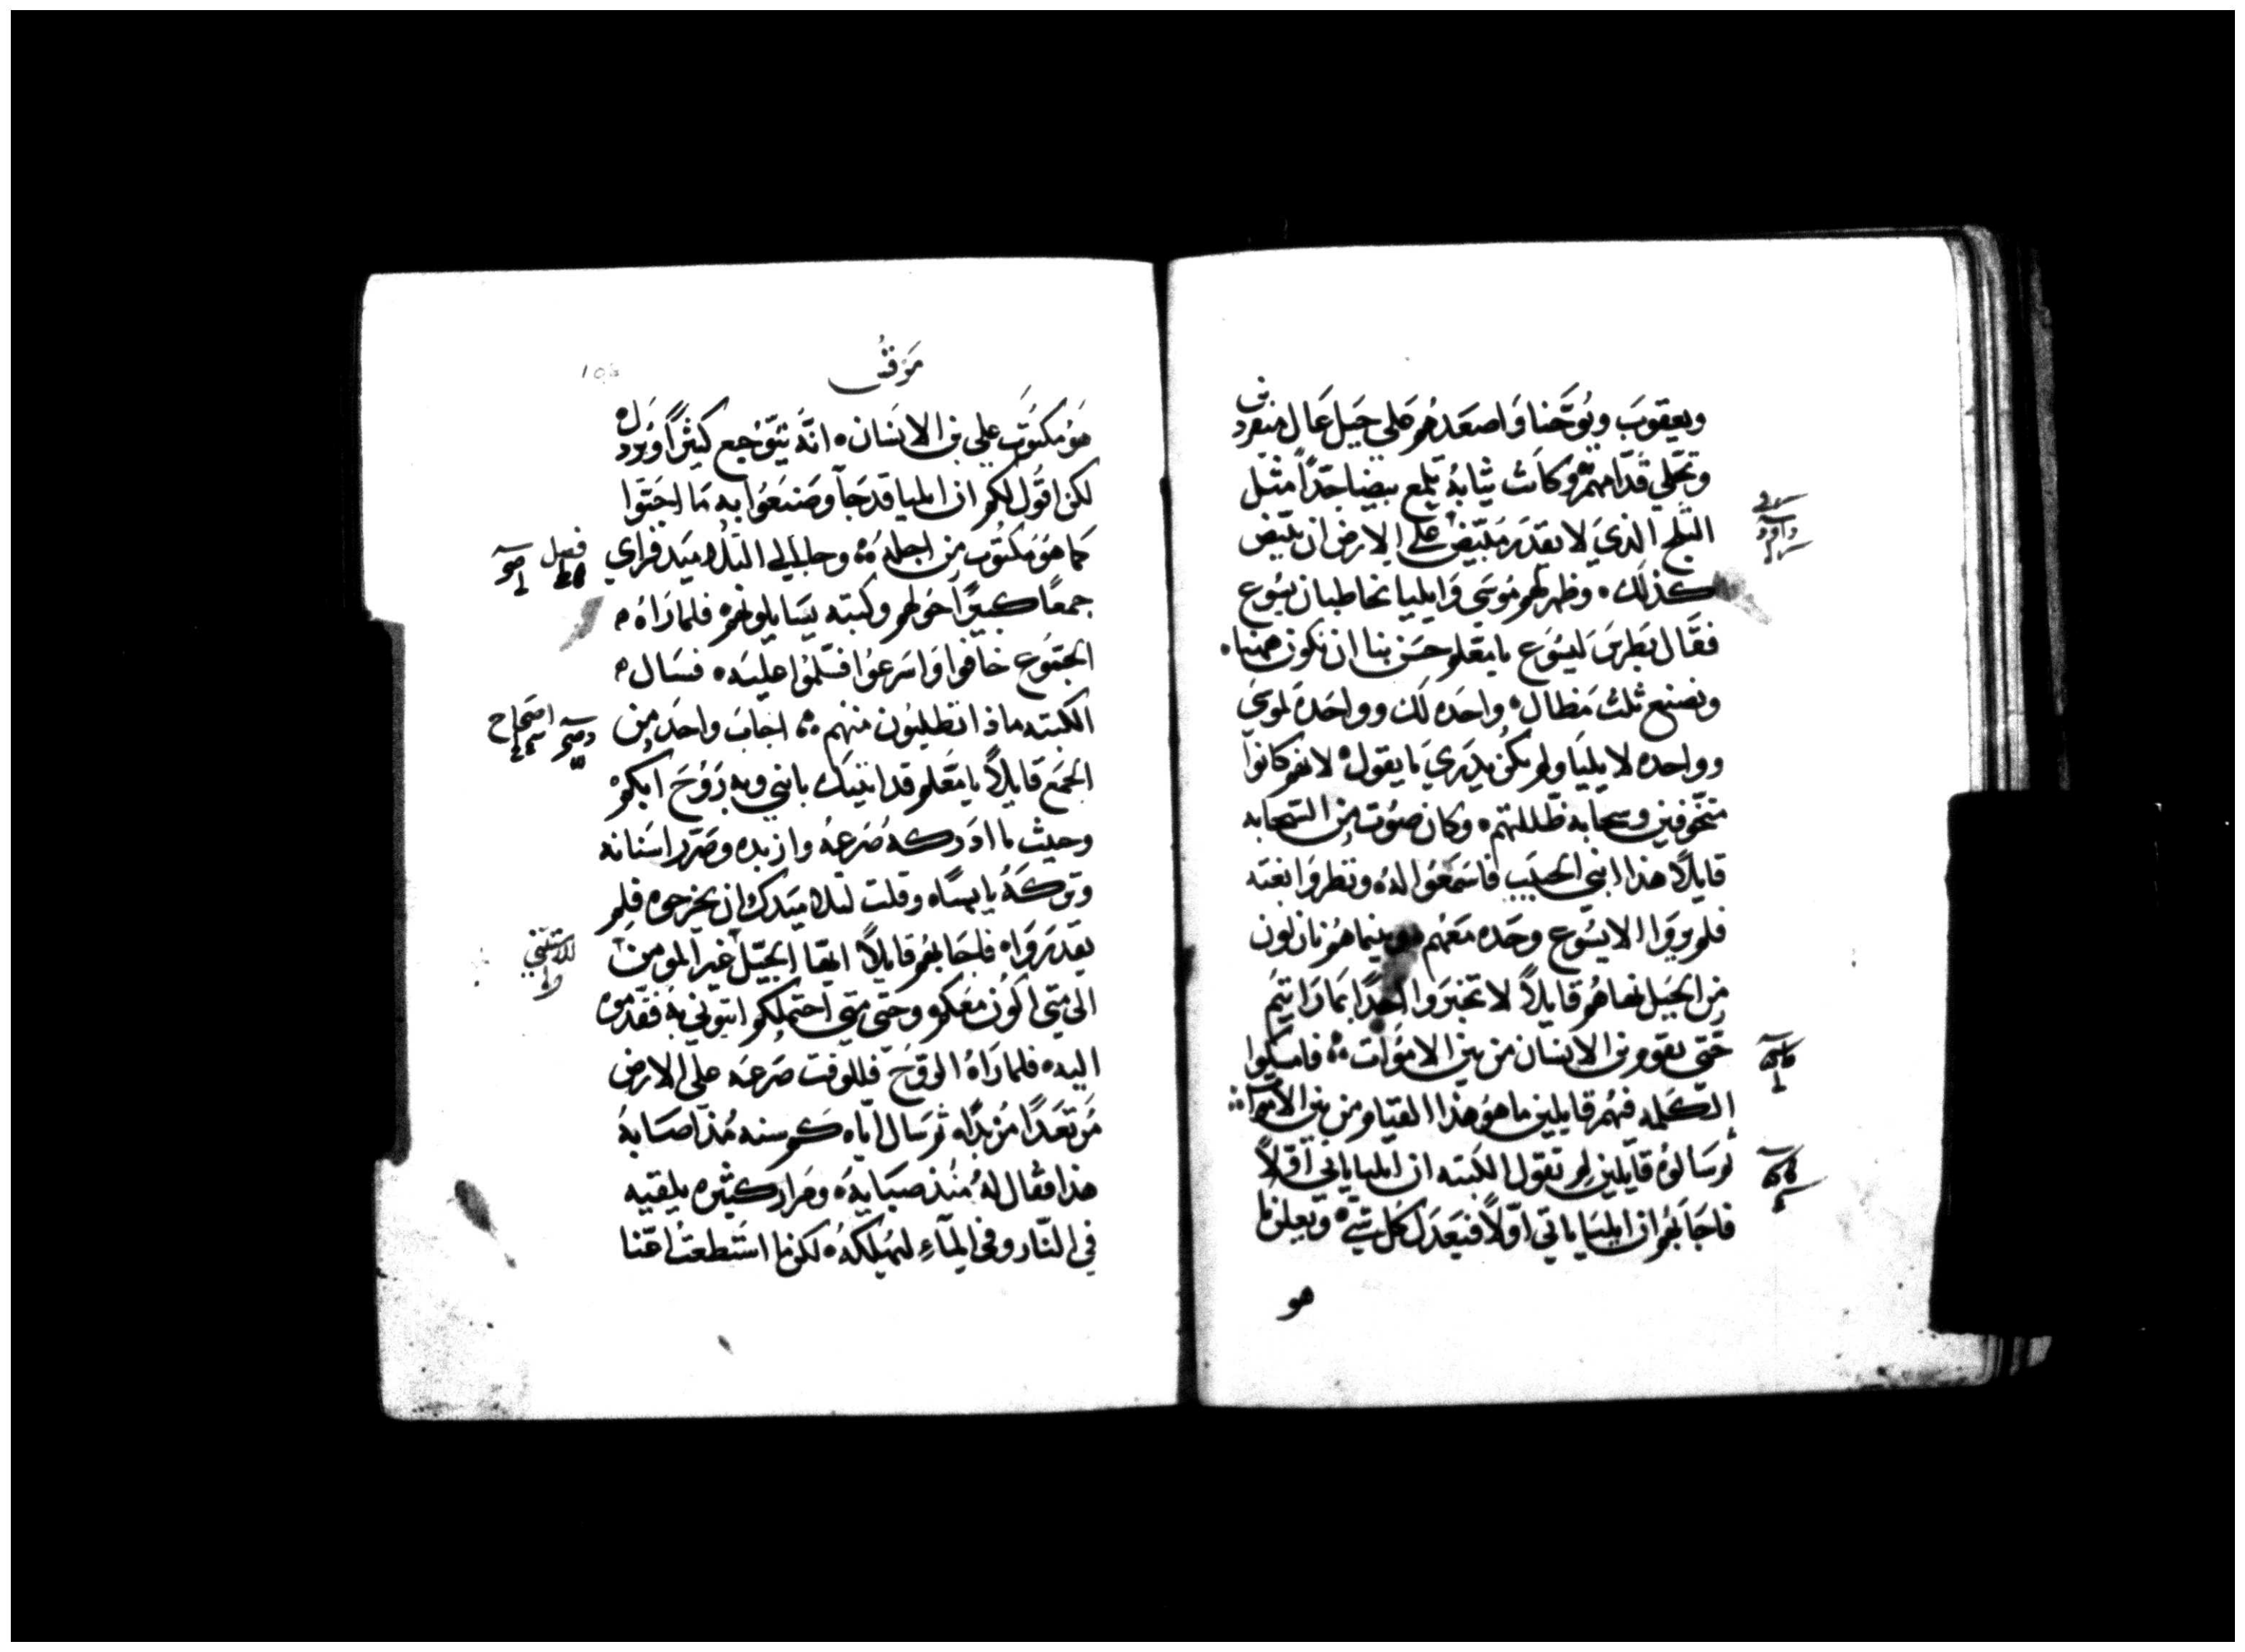 ويعقوبَ ويُوحَّنا وَاصعَدهُم علي جَبل عَال منفرد ين
وتجَلي قدّامهمْ وكانتْ ثيابهُ تلمع بيضا جدّاً مثل
الثلج الذي لا يقدر مبَيّض علي الارض ان يبيّض
كذلك ه وظهر لهم مُوسَي وَايليا يخاطبان يسُوع
فقال بَطرس ليسُوَع يا مَعَلم حسَن بنا ان نكون ههنا ه
ونصنع ثلث مَظال ه واحَده لك وواحَدة لموسَي
وواحده لايليَا ولم يكن يدري ما يقول ه لانهم كانوا
متخوفين وسحابه ظللتهم ه وكان صُوت من السَحابه
قايلاً هذا ابني الحبيَب فاسَمَعُوا لهُ ه ونظروا بغته
فلم يروا الا يسُوع وحَده معَهم ه وبينما هُم نازلون
من الجَبل نهاهُم قايلاً لا تخبروا احَدًا بمَا رَايتمْ
حَتّي يقوم بن الانسان من بين الامَوات ه فامسَكوا
الكلمه فيهم قايلين ما هوُ هذا القيام من بين الاموات
ثم سَالوهُ قايلين لِم تقول الكتبه ان ايليا ياتي اوّلاً
فاجَابهُم ان ايليَا ياتي اوّلاً فيَعدل كل شي ه ويعلن ما
هو
مَرقسُ
106
هوُ مكتُوبَ علي بن الانسَان ه انهُ يتَوجع كيثرًا ويُرذل
لكن اقول لكم ان ايليا قد جَآ وصَنعَوُا به مَا احَبّوا
كما هوَ مكتُوب من اجله ه وجا الي التلاميَد فراي
فصل
جمعًا كبيرًا حَولهم وكتبته يسَايلونهم ه فلما رَاه
الجمَوع خافوا وَاسَرعوُا فسَلموُا عليَه ه فسَال
الكتبه ماذا تطلبوُن منهم ه اجابَ واحَد من
اصَحاح
الجمَع قايلاً يا مَعَلم قد اتيتك بابني وبه رَوُح ابكم
وحيث ما ادَركه صَرعهُ وازبده وصَرّر اسَنانه
وتركهُ يابسًا ه وقلت لتلاميَدك ان يخرجوه فلم
يقدرَوا ه فاجَابهُم قايلاً ايهَا الجيَل غير المومن
الي متي اكوُن معَكم وحتي متي احتملكم ايتوني به فقدّموه
اليه ه فلما رَاهُ الروُح فللوقت صَرعَه علي الارض
مَرتعَدًا مزبدًا ه ثم سَال اباه كم سنه مُذ اصَابهُ
هذا فقال لهُ مُنذ صبَايهُ ه ومَرار كثيره يلقيه
في النّار وفي الماءِ ليهُلكهُ ه لكن ما استَطعَت اعنا